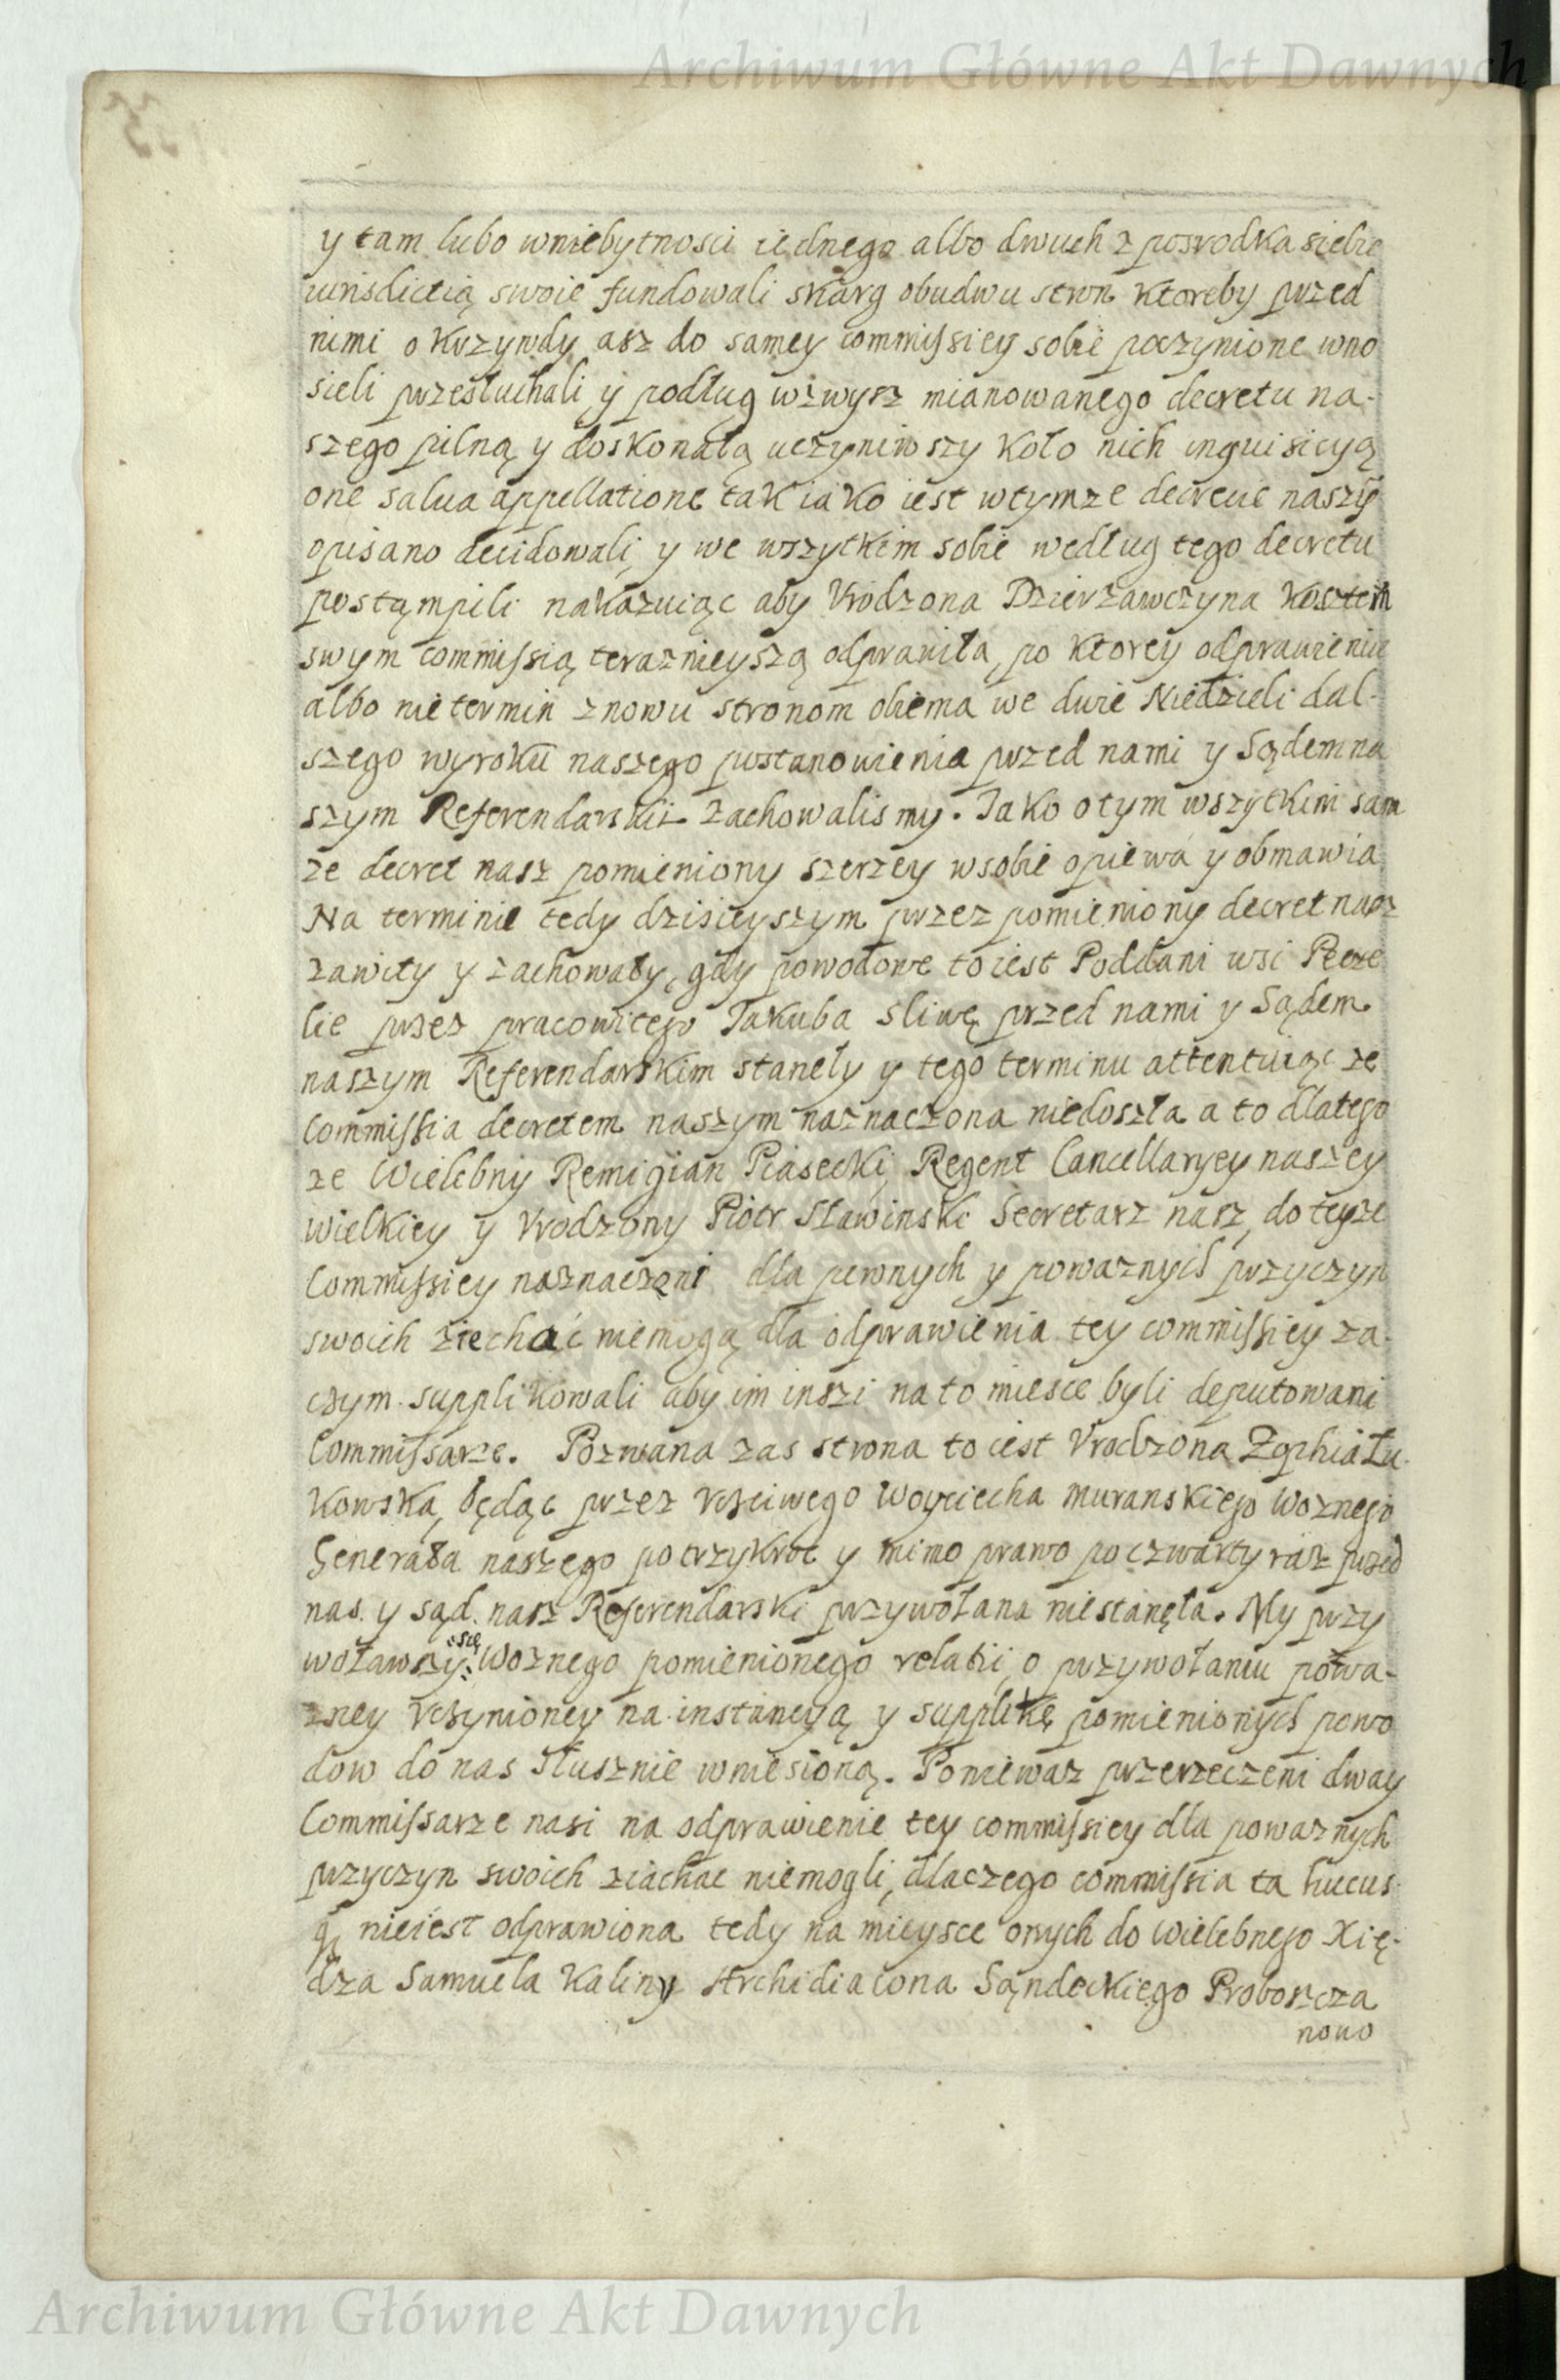 Archiwum Główne Akt Dawnych
y tam lubo wniebytnosci iednego albo dwuch z posrodka siebie
iurisdictią swoie fundowali skarg obudwu stron ktoreby przed
nimi o krzywdy asz do samey commissiey sobie poczynione wno
sieli przesłuchali y podług wzwysz mianowanego decretu na-
szego pilną y doskonałą uczyniwszy koło nich inquisicyą
one salua appellatione tak iako iest wtymze decrecie naszÿ
opisano decidowali, y we wszytkim sobie według tego decretu
postąmpili nakazuiąc aby Vrodzona Dzierzawczyna kosztem
swym commissią teraznieyszą odprawiła, po ktorey odprawieniu
albo nie termin znowu stronom obiema we dwie Niedzieli dal-
szego wyroku naszego postanowienia przed nami y Sądem na
szym Referendarskiż zachowalismy. Jako o tym wszytkim sam
ze decret nasz pomieniony szerzey wsobie opiewa y obmawia
Na terminie tedy dzisieyszym przez pomieniony decret nasz
zawity y zachowały, gdy powodowe to iest Poddani wsi Pcze
lie przez pracowitego Jakuba Sliwę przed nami y Sądem
naszym Referendarskim stanęły y tego terminu attentuiąc ze
Commissia decretem naszym naznaczona niedoszła a to dlatego
ze Wielebny Remigian Piasecki, Regent Cancellaryey naszey
wielkiey y Vrodzony Piotr Sławinski Secretarz nasz, do teyze
Commissiey naznaczeni dla pewnych y powaznych przyczyn
swoich ziechać niemogą, dla odprawienia tey commissiey za-
czym supplikowali aby im inszi na to miesce byli deputowani
Commissarze. Pozwana zas strona to iest Vrodzona Zophia Łu-
kowska, będąc przez Vczciwego Woyciecha Muranskiego Woznego
Generała naszego potrzykroc y mimo prawo poczwarty raz przed
nas y sąd nasz Referendarski przywołana niestanęła. My przy
woławszy się Woznego pomienionego relatii, o przywołaniu pozwa-
zney Vczynioney na instancyą y supplikę pomienionych powo
dow do nas słusznie wniesioną. Poniewaz przerzeczeni dway
Commissarze nasi na odprawienie tey commissiey dla powaznych
przyczyn swoich ziachac niemogli, dlaczego commissia ta hucus
q̨ nieiest odprawiona tedy na mieysce onych do Wielebnego Xię-
dza Samuela Kaliny Archidiacona Sądeckiego Proboszcza
nowo
Archiwum Główne Akt Dawnych